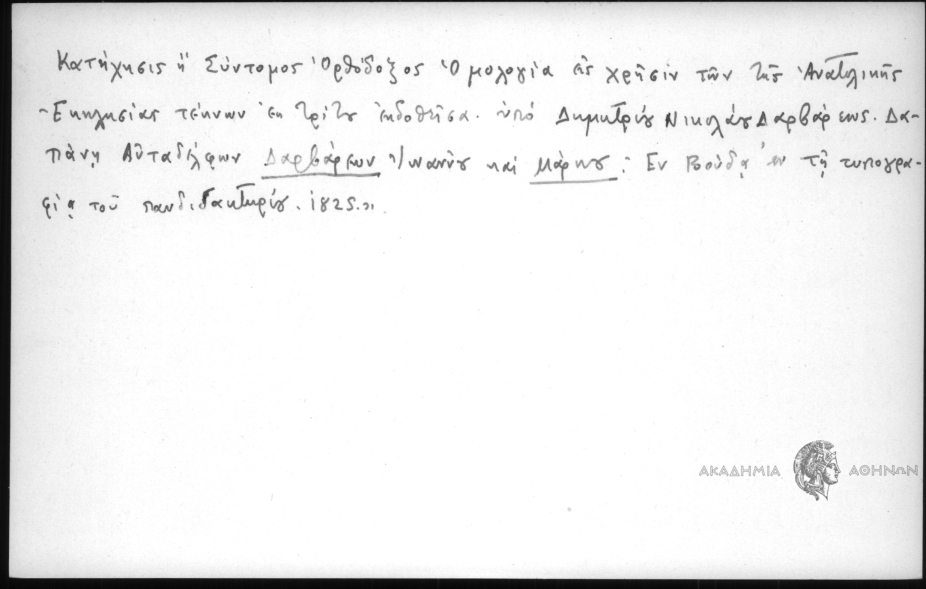 Κατήχησις ἤ Σύντομος Ὀρθόδοξος Ὁμολογία εἰς χρῆσιν τῶν τῆς Ἀνατολικῆς
Ἐκκλησίας τέκνων ἐκ τρίτου ἐκδοθεῖσα. ὑπό Δημητρίου Νικολάου Δαρβάρεως. Δα-
πάνῃ Αὐταδέλφων Δαρβάρεων Ἰωάννου καί Μάρκου: Ἐν Βούδᾳ ἐν τῇ τυπογρα-
φίᾳ τοῦ πανδιδακτηρίου. 1825.
ΑΚΑΔΗΜΙΑ ΑΘΗΝΩΝ